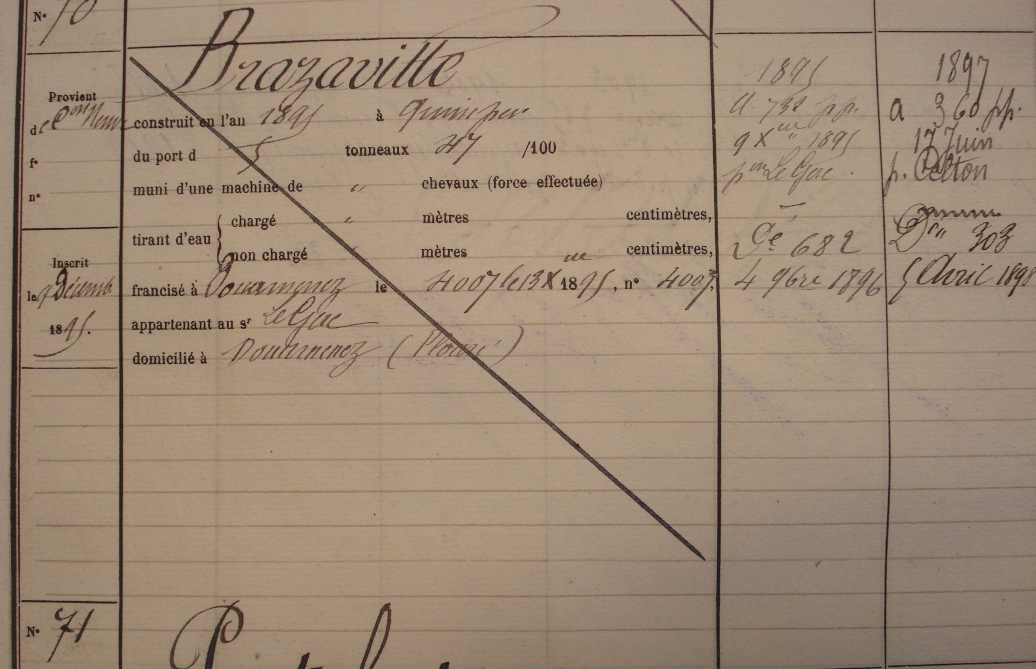 N° 70
Brazaville
Provient
de Con Neuve
f°
n°
construit en l'an 1895 à Quimper
du port d 5 tonneaux 47 /100
muni d'une machine de " chevaux (force effectuée)
tirant d'eau { chargé " mètres centimètres,
non chargé " mètres centimètres,
francisé à Douarnenez le 4007 le 13 Xbre 1895, n° 4007.
appartenant au sr Le Gac
domicilié à Douarnenez (Ploaré)
Inscrit
le 9 Décemb
1895.
1895
a. 732 pp.
9 Xbre 1895
pon Le Gac
Dé 682
4 9bre 1896
1897
a 360 pp.
17 Juin
p. Celton
Dcn 303
5 Avril 1898
N° 71